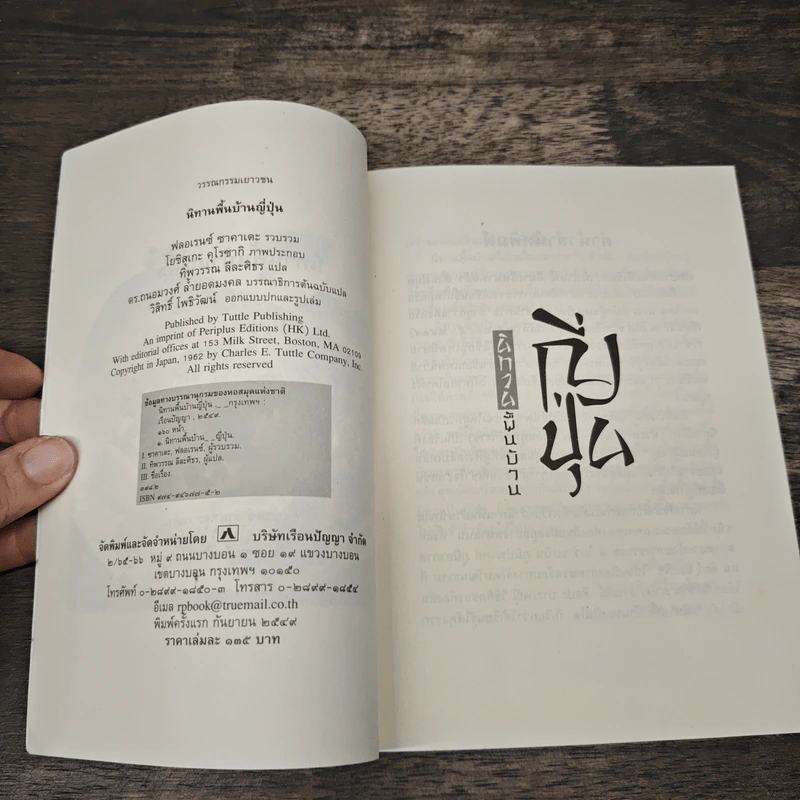 วรรณกรรมเยาวชน
นิทานพื้นบ้านญี่ปุ่น
ฟลอเรนซ์ ซาคาเดะ รวบรวม
โยชิสุเกะ คุโรซากิ ภาพประกอบ
ทิพวรรณ ลีละศิธร แปล
ดร.ถนอมวงศ์ ล้ำยอดมรรคผล บรรณาธิการต้นฉบับแปล
วิสิทธิ์ โพธิวัฒน์ ออกแบบปกและรูปเล่ม
Published by Tuttle Publishing
An imprint of Periplus Editions (HK) Ltd.
With editorial offices at 153 Milk Street, Boston, MA 02109
Copyright in Japan, 1962 by Charles E. Tuttle Company, Inc.
All rights reserved
ข้อมูลทางบรรณานุกรมของหอสมุดแห่งชาติ
นิทานพื้นบ้านญี่ปุ่น._ _กรุงเทพฯ :
เรือนปัญญา , ๒๕๔๙.
๑๖๐ หน้า.
๑. นิทานพื้นบ้าน_ _ญี่ปุ่น.
I. ซาคาเดะ, ฟลอเรนซ์, ผู้รวบรวม.
II. ทิพวรรณ ลีละศิธร, ผู้แปล.
III. ชื่อเรื่อง.
๓๙๘.๒
ISBN ๙๗๔-๙๔๖๗๗-๕-๒
จัดพิมพ์และจัดจำหน่ายโดย บริษัทเรือนปัญญา จำกัด
๒/๖๕-๖๖ หมู่ ๙ ถนนบางบอน ๑ ซอย ๑๙ แขวงบางบอน
เขตบางบอน กรุงเทพฯ ๑๐๑๕๐
โทรศัพท์ ๐-๒๘๙๙-๑๘๕๐-๓ โทรสาร ๐-๒๘๙๙-๑๘๕๔
อีเมล rpbook@truemail.co.th
พิมพ์ครั้งแรก กันยายน ๒๕๔๙
ราคาเล่มละ ๑๓๕ บาท
นิทานพื้นบ้าน
ญี่ปุ่น